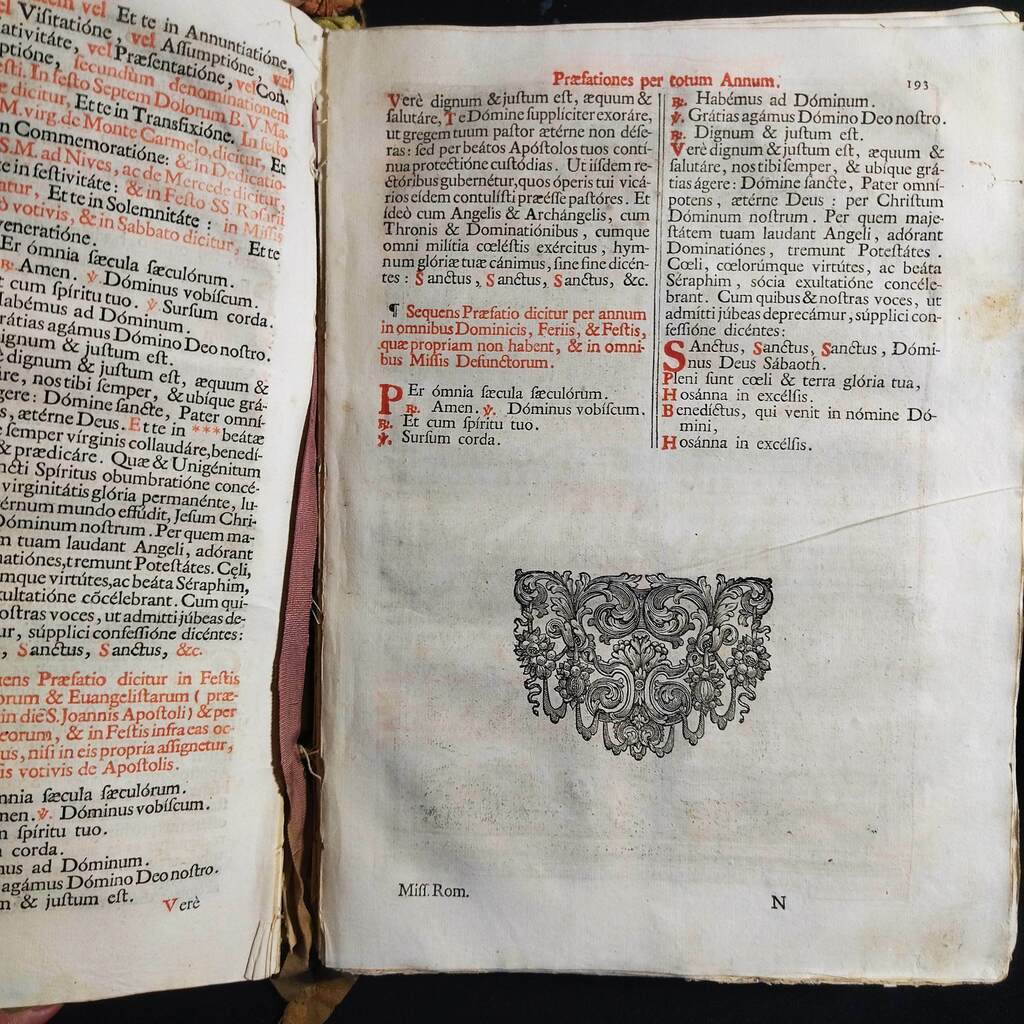 vel Et te in Annuntiatióne,
Viſitatióne, vel Aſſumptióne, vel
ativitáte, vel Præſentatióne, vel Con-
ptióne, ſecundùm denominationem
feſti. In feſto Septem Dolorum B. V. Ma-
dicitur, Et te in Transfixióne. In feſto
M. virg. de Monte Carmelo, dicitur, Et
n Commemoratióne: & in Dedicatio-
S.M. ad Nives, ac de Mercede dicitur,
te in feſtivitáte: & in Feſto SS. Roſarii
Et te in Solemnitáte: in Miſſis
votivis, & in Sabbato dicitur, Et te
veneratióne.
Er ómnia ſæcula ſæculórum.
℟. Amen. ℣. Dóminus vobíſcum.
t cum ſpíritu tuo. ℣ Surſum corda.
Habémus ad Dóminum.
rátias agámus Dómino Deo noſtro.
ignum & juſtum eſt.
è dignum & juſtum eſt, æquum &
re, nos tibi ſemper, & ubíque grá-
gere: Dómine ſancte, Pater omní-
s, ætérne Deus. Et te in *** beátæ
ſemper vírginis collaudáre, benedí-
& prædicáre. Quæ & Unigénitum
ncti Spíritus obumbratióne concé-
virginitátis glória permanénte, lu-
érnum mundo effúdit, Jeſum Chri-
Dóminum noſtrum. Per quem ma-
m tuam laudant Angeli, adórant
natiónes, tremunt Poteſtátes. Cęli,
mque virtútes, ac beáta Séraphim,
xultatióne cõcélebrant. Cum qui-
oſtras voces, ut admitti júbeas de-
ur, súpplici confeſſióne dicéntes:
, Sanctus, Sanctus, &c.
uens Præfatio dicitur in Feſtis
orum & Euangeliſtarum ( præ-
in die S. Joannis Apoſtoli) & per
eorum, & in Feſtis infra eas oc-
us, niſi in eis propria aſſignetur,
is votivis de Apoſtolis.
nnia ſæcula ſæculórum.
men. ℣. Dóminus vobíſcum.
n ſpíritu tuo.
corda.
nus ad Dóminum.
agámus Dómino Deo noſtro.
n & juſtum eſt.
Verè
Præfationes per totum Annum. 193
Verè dignum & juſtum eſt, æquum &
ſalutáre, Te Dómine ſupplíciter exoráre,
ut gregem tuum paſtor ætérne non déſe-
ras: ſed per beátos Apóſtolos tuos contí-
nua protectióne cuſtódias. Ut iíſdem re-
ctóribus gubernétur, quos óperis tui vicá-
rios eíſdem contulíſti præéſſe paſtóres. Et
ídeò cum Angelis & Archángelis, cum
Thronis & Dominatiónibus, cumque
omni milítia cœléſtis exércitus, hym-
num glóriæ tuæ cánimus, ſine fine dicén-
tes: Sanctus, Sanctus, Sanctus, &c.
¶ Sequens Præfatio dicitur per annum
in omnibus Dominicis, Feriis, & Feſtis,
quæ propriam non habent, & in omni-
bus Miſſis Defunctorum.
PEr ómnia ſæcula ſæculórum.
℟. Amen. ℣. Dóminus vobíſcum.
℟. Et cum ſpíritu tuo.
℣. Surſum corda.
℟. Habémus ad Dóminum.
℣. Grátias agámus Dómino Deo noſtro.
℟. Dignum & juſtum eſt.
Verè dignum & juſtum eſt, æquum &
ſalutáre, nos tibi ſemper, & ubíque grá-
tias ágere: Dómine ſancte, Pater omní-
potens, ætérne Deus: per Chriſtum
Dóminum noſtrum. Per quem maje-
ſtátem tuam laudant Angeli, adórant
Dominatiónes, tremunt Poteſtátes.
Cœli, cœlorúmque virtútes, ac beáta
Séraphim, sócia exultatióne concéle-
brant. Cum quibus & noſtras voces, ut
admitti júbeas deprecámur, súpplici con-
feſſióne dicéntes:
SAnctus, Sanctus, Sanctus, Dómi-
nus Deus Sábaoth.
Pleni ſunt cœli & terra glória tua,
Hosánna in excélſis.
Benedíctus, qui venit in nómine Dó-
mini,
Hosánna in excélſis.
Miſſ. Rom. N